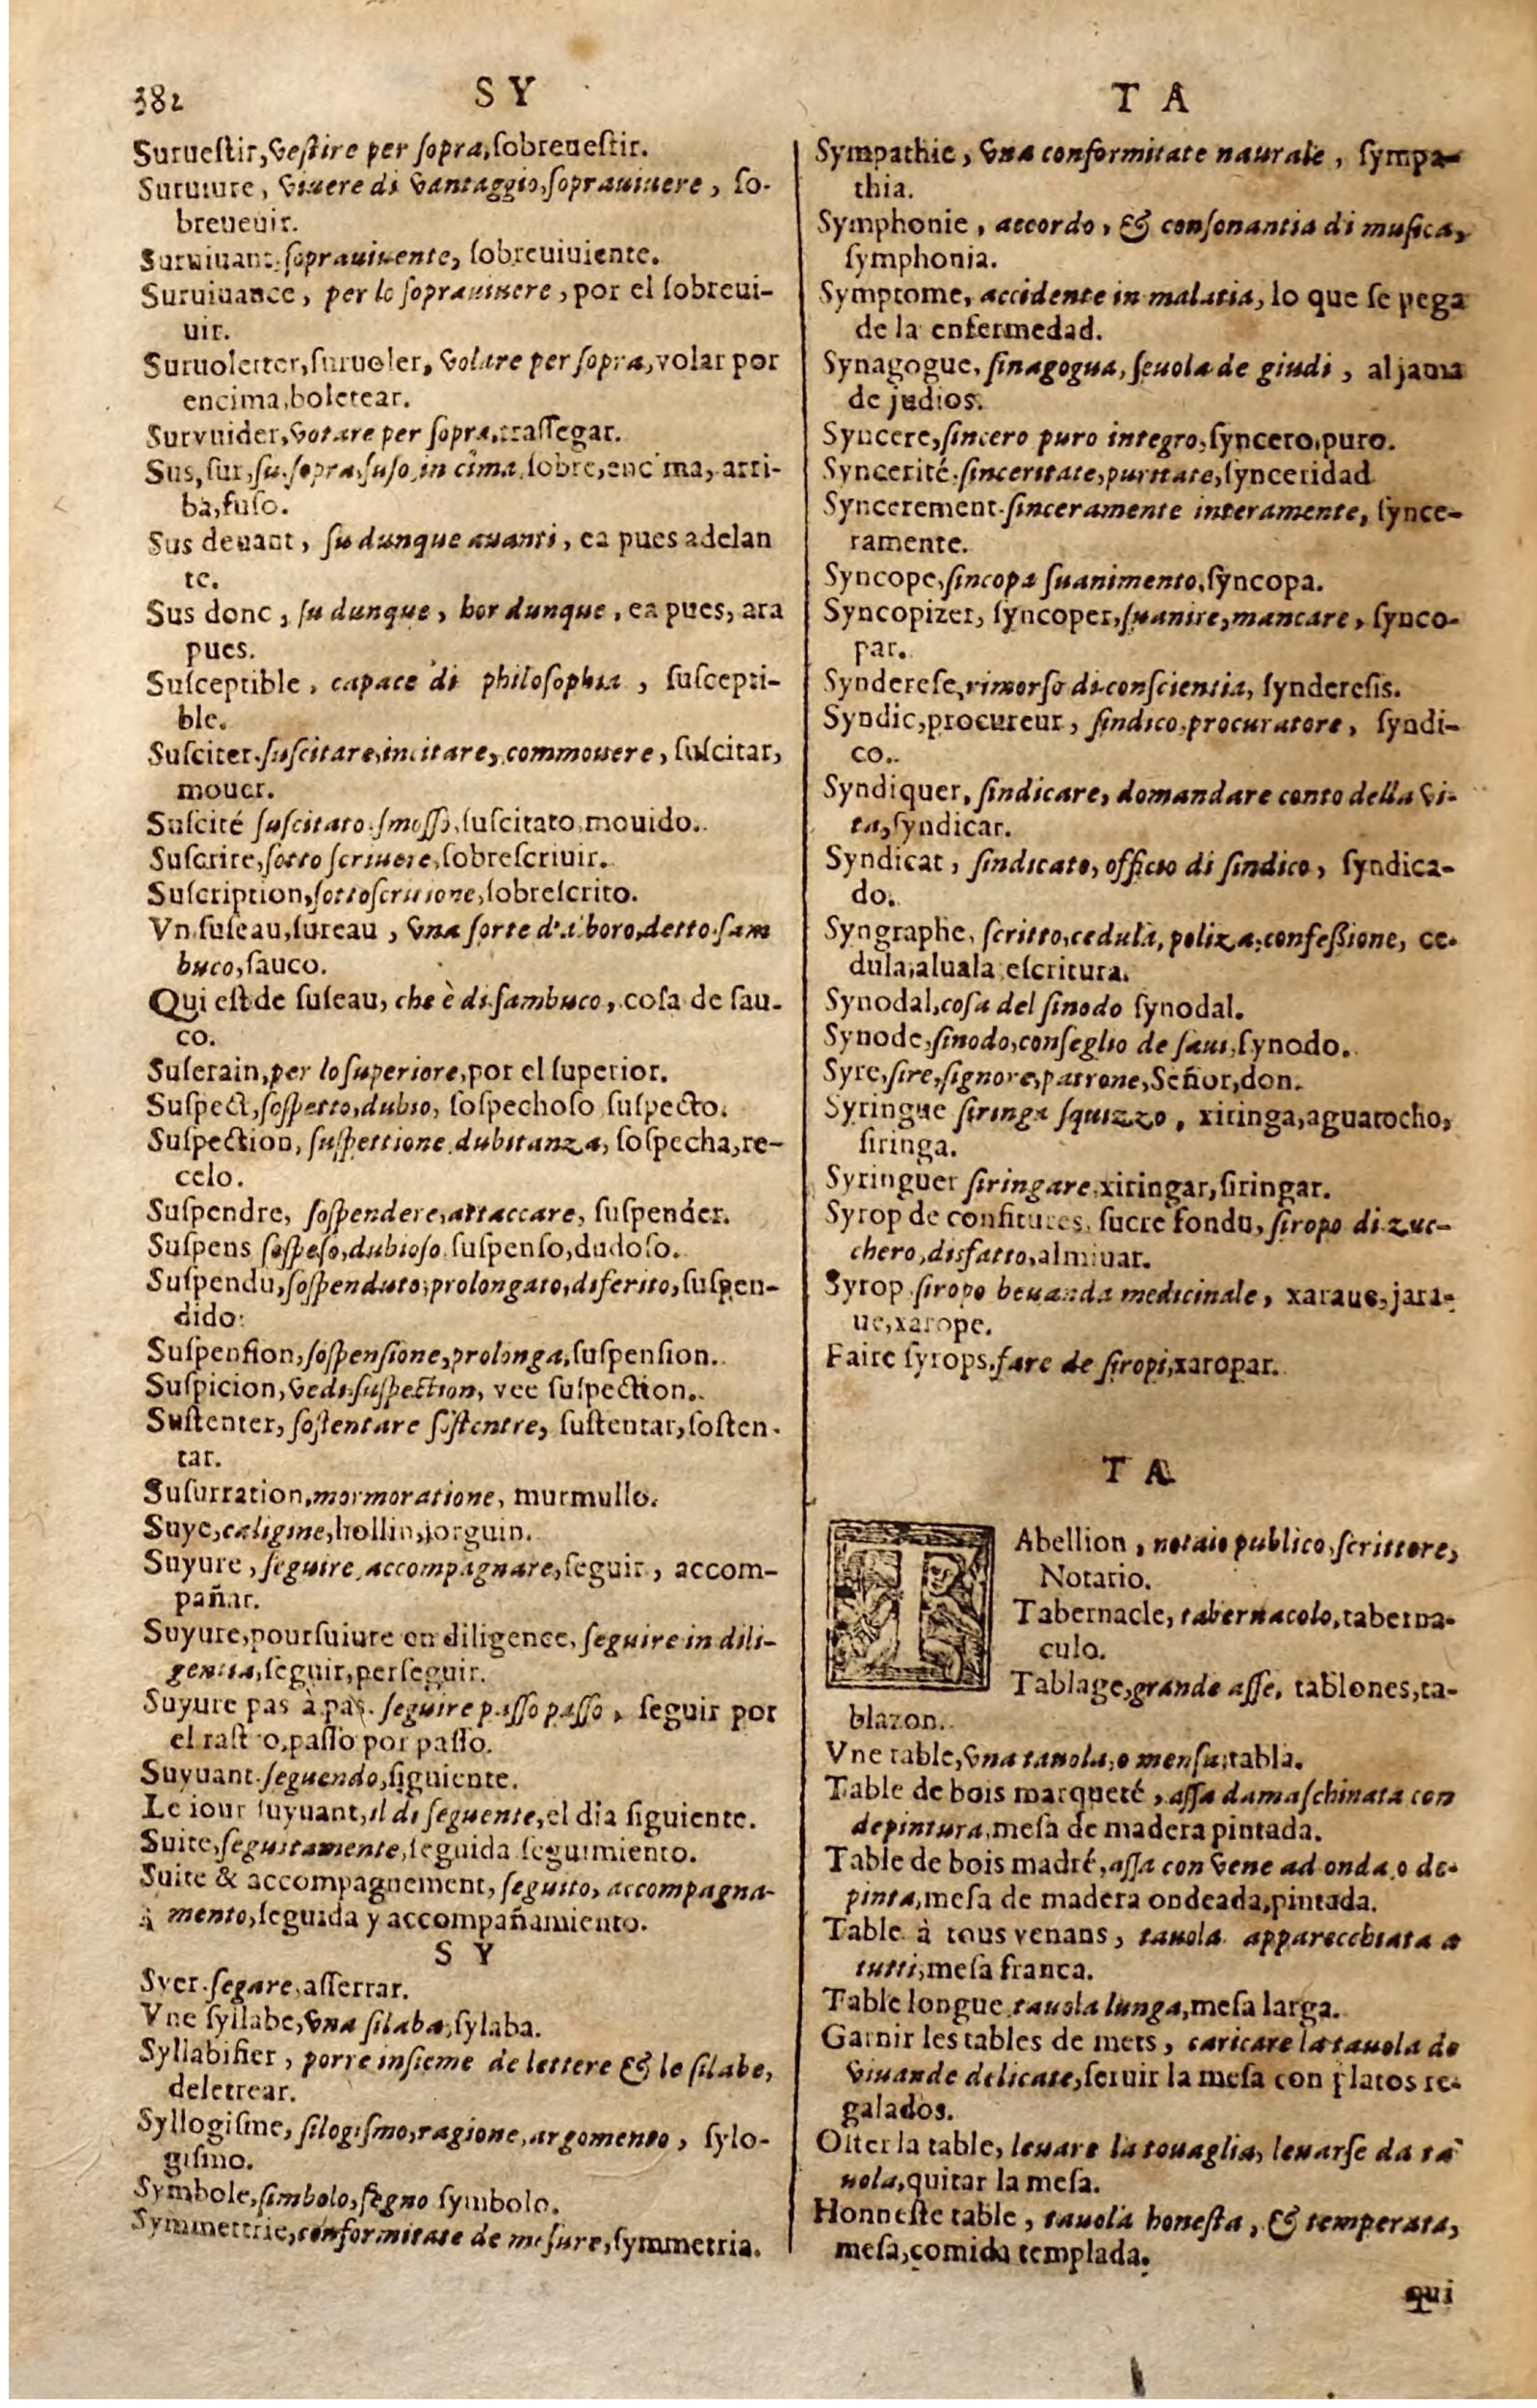 382
S Y
T A
Suruestir, vestire per sopra, sobreuestir.
Suruiure, viuere di vantaggio, soprauiuere, so-
breueuir.
Suruiuant, soprauiuente, sobreuiuiente.
Suruiuance, per lo soprauiuere, por el sobreui-
uir.
Suruoletter, suruoler, volare per sopra, volar por
encima, boletear.
Survuider, votare per sopra, trassegar.
Sus, sur, su, sopra, suso, in cima, sobre, encima, arri-
ba, suso.
Sus deuant, su dunque auanti, ea pues adelan
te.
Sus donc, su dunque, hor dunque, ea pues, ara
pues.
Susceptible, capace di philosophia, suscepti-
ble.
Susciter. suscitare, incitare, commouere, suscitar,
mouer.
Suscité suscitato. smosso, suscitato, mouido.
Suscrire, sotto scriuere, sobrescriuir.
Suscription, sottoscritione, sobrescrito.
Vn suseau, sureau, vna sorte d'alboro, detto sam
buco, sauco.
Qui est de suseau, che è di sambuco, cosa de sau-
co.
Suserain, per lo superiore, por el superior.
Suspect, sospetto, dubio, sospechoso, suspecto.
Suspection, suspettione, dubitanza, sospecha, re-
celo.
Suspendre, sospendere, attaccare, suspender.
Suspens sospeso, dubioso suspenso, dudoso.
Suspendu, sospenduto, prolongato, diferito, suspen-
dido.
Suspension, sospensione, prolonga, suspension.
Suspicion, vedi suspection, vee suspection.
Sustenter, sostentare sostentre, sustentar, sosten-
tar.
Susurration, mormoratione, murmullo.
Suye, caligine, hollin, jorguin.
Suyure, seguire, accompagnare, seguir, accom-
pañar.
Suyure, poursuiure en diligence, seguire in dili-
gentia, seguir, perseguir.
Suyure pas à pas. seguire passo passo, seguir por
el rastro, passo por passo.
Suyuant. seguendo, siguiente.
Le iour suyuant, il di seguente, el dia siguiente.
Suite, seguitamente, seguida seguimiento.
Suite & accompagnement, seguito, accompagna-
mento, seguida y accompañamiento.
S Y
Syer. segare, asserrar.
Vne syllabe, vna silaba, sylaba.
Syllabifier, porre insieme de lettere & le silabe,
deletrear.
Syllogisme, silogismo, ragione, argomento, sylo-
gismo.
Symbole, simbolo, segno symbolo.
Symmettrie, conformitate de mesure, symmetria.
Sympathie, vna conformitate naurale, sympa-
thia.
Symphonie, accordo, & consonantia di musica,
symphonia.
Symptome, accidente in malatia, lo que se pega
de la enfermedad.
Synagogue, sinagogua, scuola de giudi, aljama
de judios.
Syncere, sincero puro integro, syncero, puro.
Syncerité. sinceritate, puritate, synceridad
Syncerement. sinceramente interamente, synce-
ramente.
Syncope, sincopa suanimento, syncopa.
Syncopizer, syncoper, suanire, mancare, synco-
par.
Synderese, rimorso di conscientia, synderesis.
Syndic, procureur, sindico, procuratore, syndi-
co.
Syndiquer, sindicare, domandare conto della vi-
ta, syndicar.
Syndicat, sindicato, officio di sindico, syndica-
do.
Syngraphe, scritto, cedula, poliza, confessione, ce-
dula, aluala, escritura.
Synodal, cosa del sinodo synodal.
Synode, sinodo, conseglio de saui, synodo.
Syre, sire, signore, patrone, Señor, don.
Syringue siringa squizzo, xiringa, aguatocho,
siringa.
Syringuer siringare, xiringar, siringar.
Syrop de confitures, sucre fondu, siropo di zuc-
chero, disfatto, almiuar.
Syrop. siropo beuanda medicinale, xaraue, jara-
ue, xarope.
Faire syrops, fare de siropi, xaropar.
T A
TAbellion, notaio publico, scrittore,
Notario.
Tabernacle, tabernacolo, taberna-
culo.
Tablage, grande asse, tablones, ta-
blazon.
Vne table, vna tauola, o mensa, tabla.
Table de bois marqueté, assa damaschinata con
depintura, mesa de madera pintada.
Table de bois madré, assa con vene ad onda, o de-
pinta, mesa de madera ondeada, pintada.
Table à tous venans, tauola apparecchiata a
tutti, mesa franca.
Table longue, tauola lunga, mesa larga.
Garnir les tables de mets, caricare la tauola de
viuande delicate, seruir la mesa con platos re-
galados.
Oster la table, leuare la touaglia, leuarse da ta
uola, quitar la mesa.
Honneste table, tauola honesta, & temperata,
mesa, comida templada.
qui